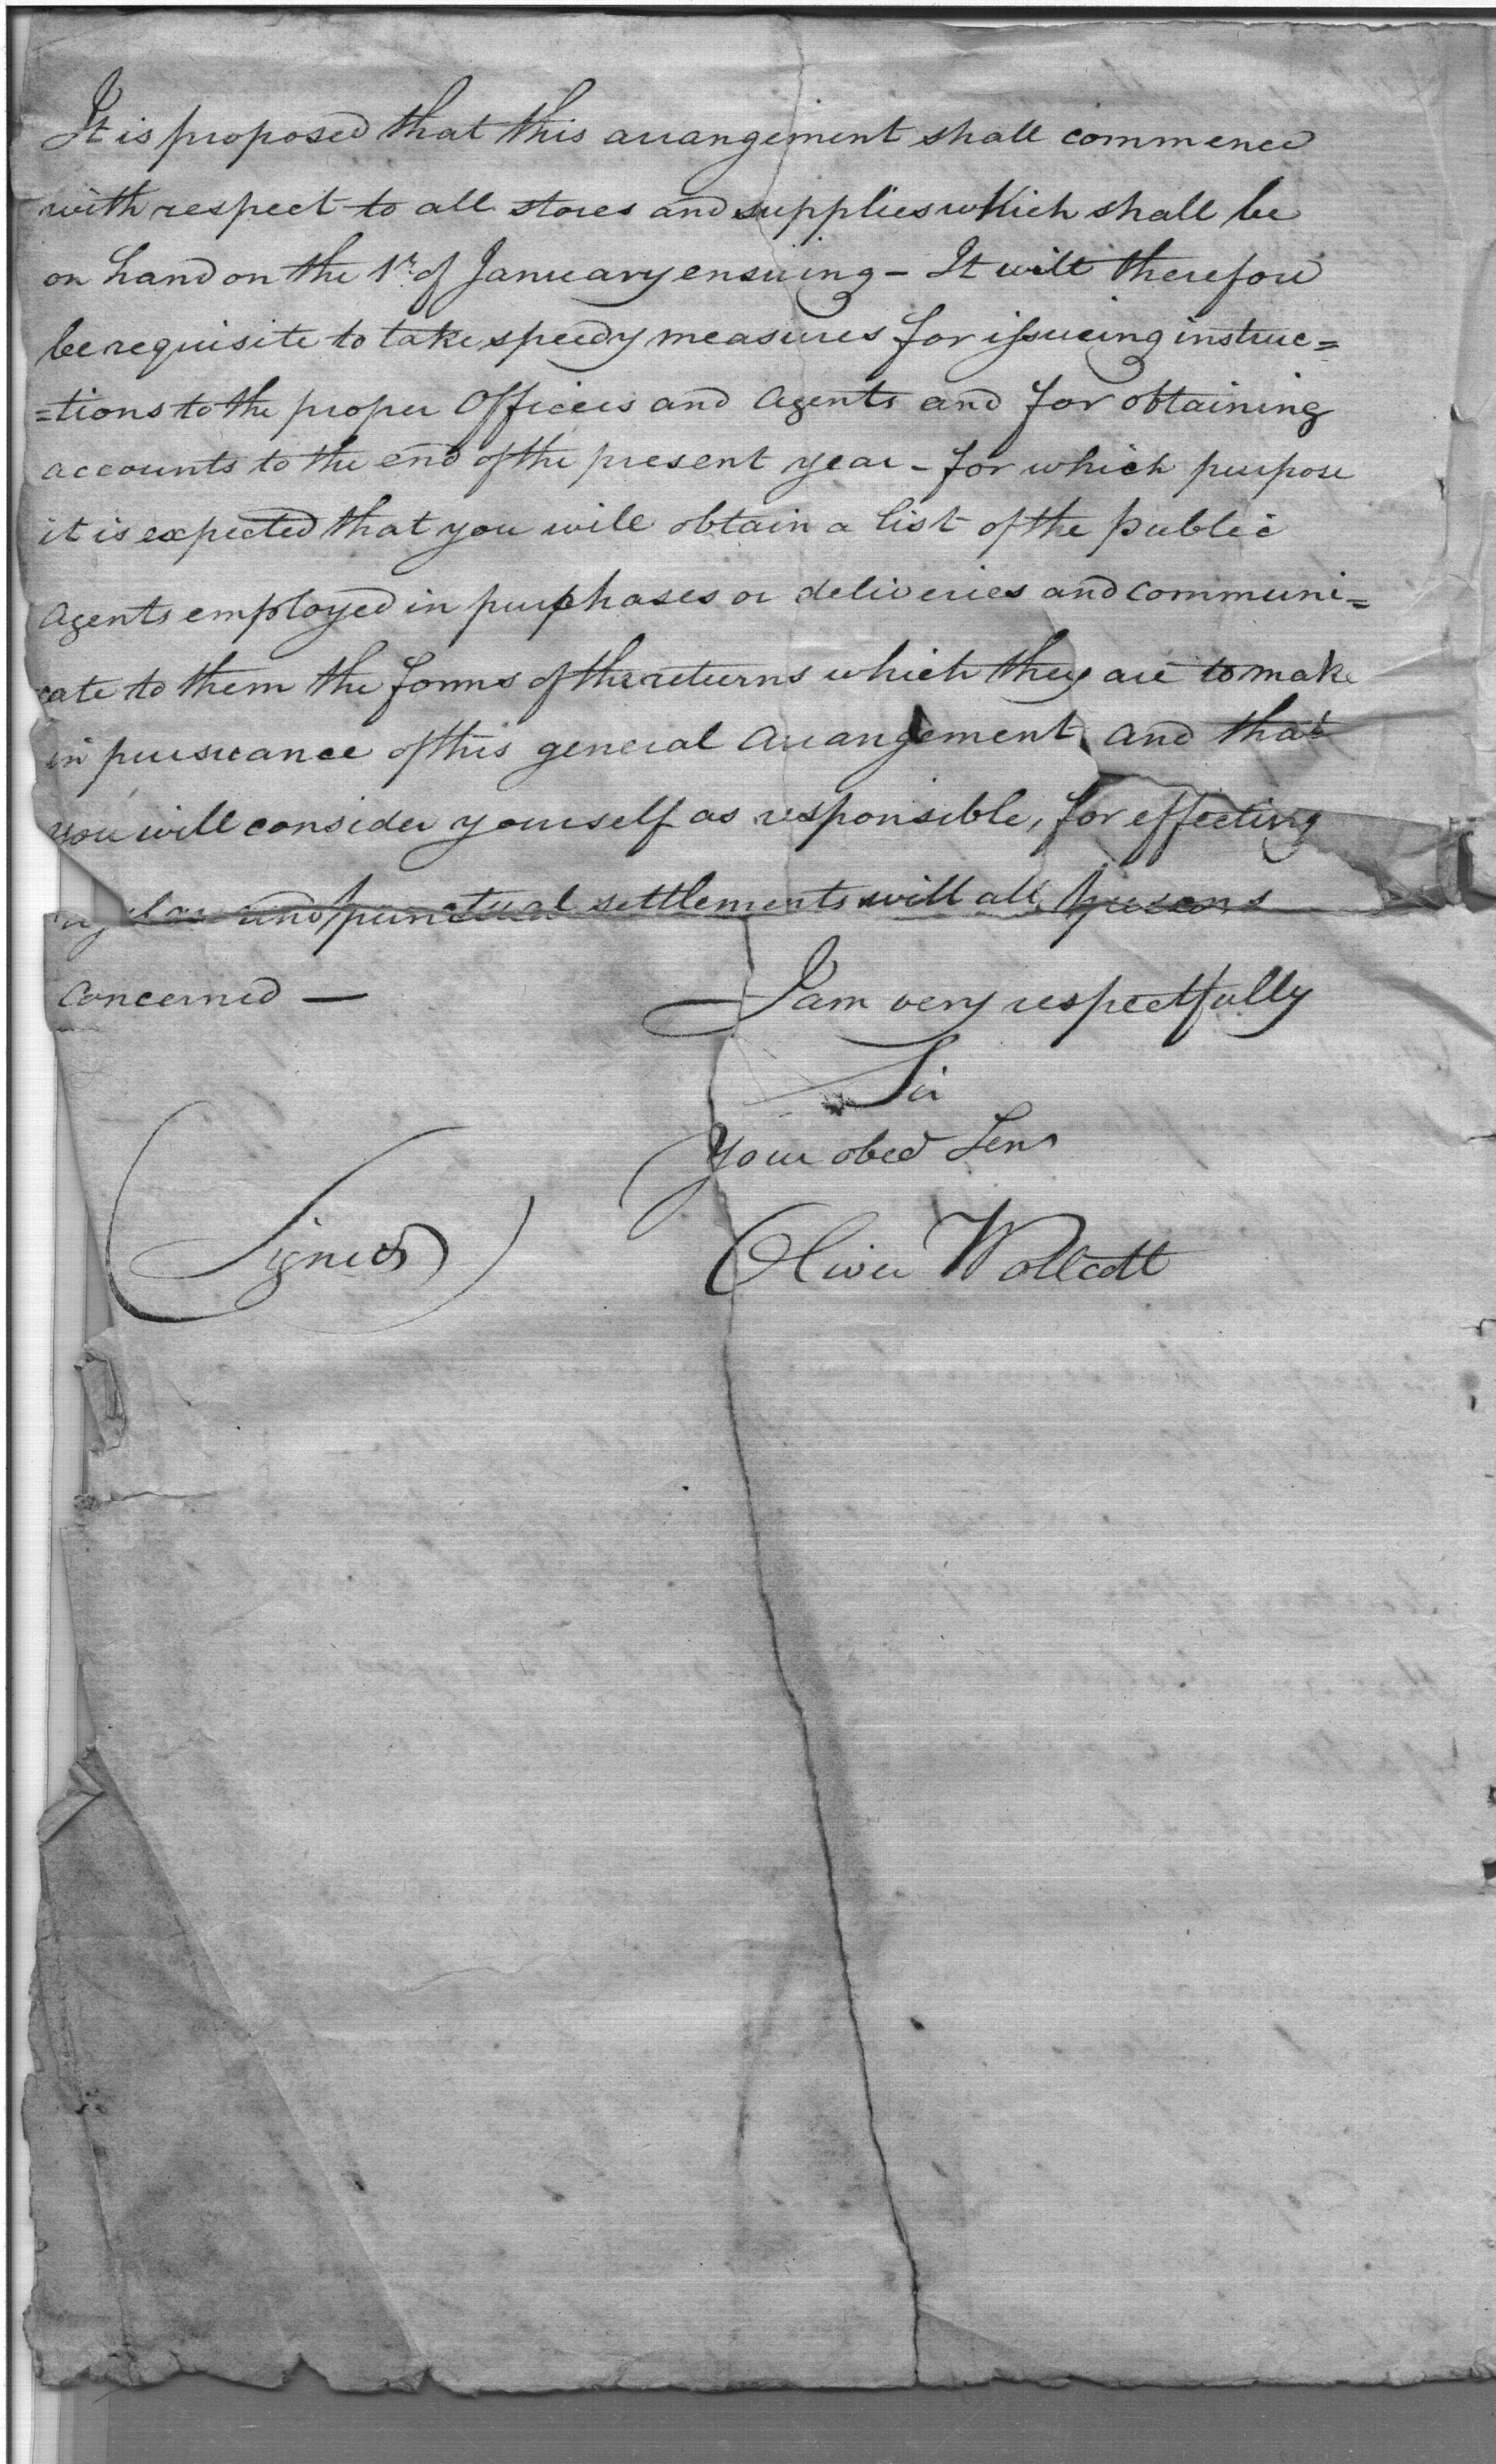 It is proposed that this arrangement shall commence
with respect to all stores and supplies which shall be
on hand on the 1st. of January ensuing - It will therefore
be requisite to take speedy measures for issueing instruc=
=tions to the proper Officers and Agents and for obtaining
accounts to the end of the present year - for which purpose
it is expected that you will obtain a list of the public
Agents employed in purchases or deliveries and communi=
cate to them the forms of the returns which they are to make
in pursuance of this general Arrangement, and that
you will consider yourself as responsible, for effecting
regular and punctual settlements will all persons
Concerned —
I am very respectfully
Sir
Your obed Serv
(Signed) Oliver Wollcott